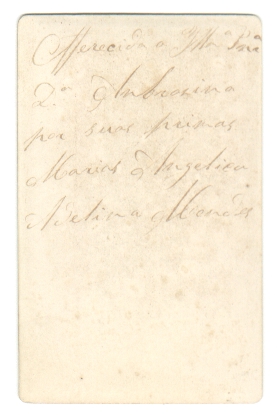 Offerecida a Illma Snra
D.a Ambrosina
por suas primas
Marias Angelica
Adelina Mendes